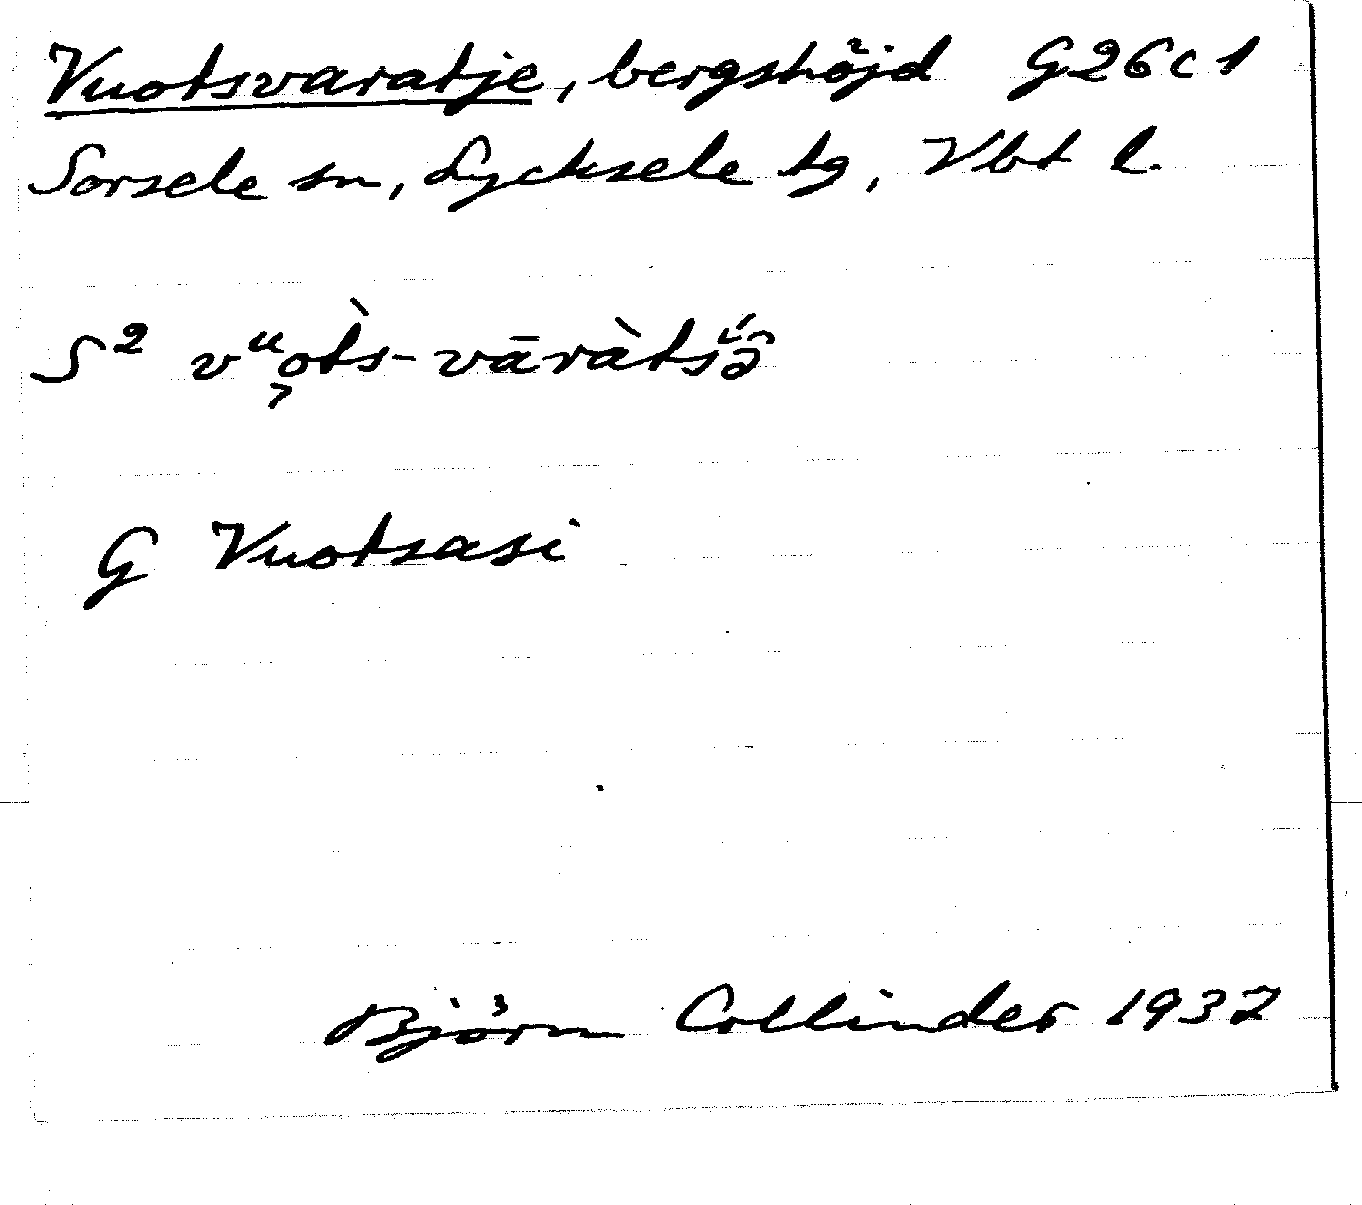 Vuotsvaratje, bergshöjd G26c1
Sorsele sn, Lycksele tg, Vbt l.
S² vᵘo̜t̀s-vāràtsՙə̑
G Vuotsasi
Björn Collinder 1937